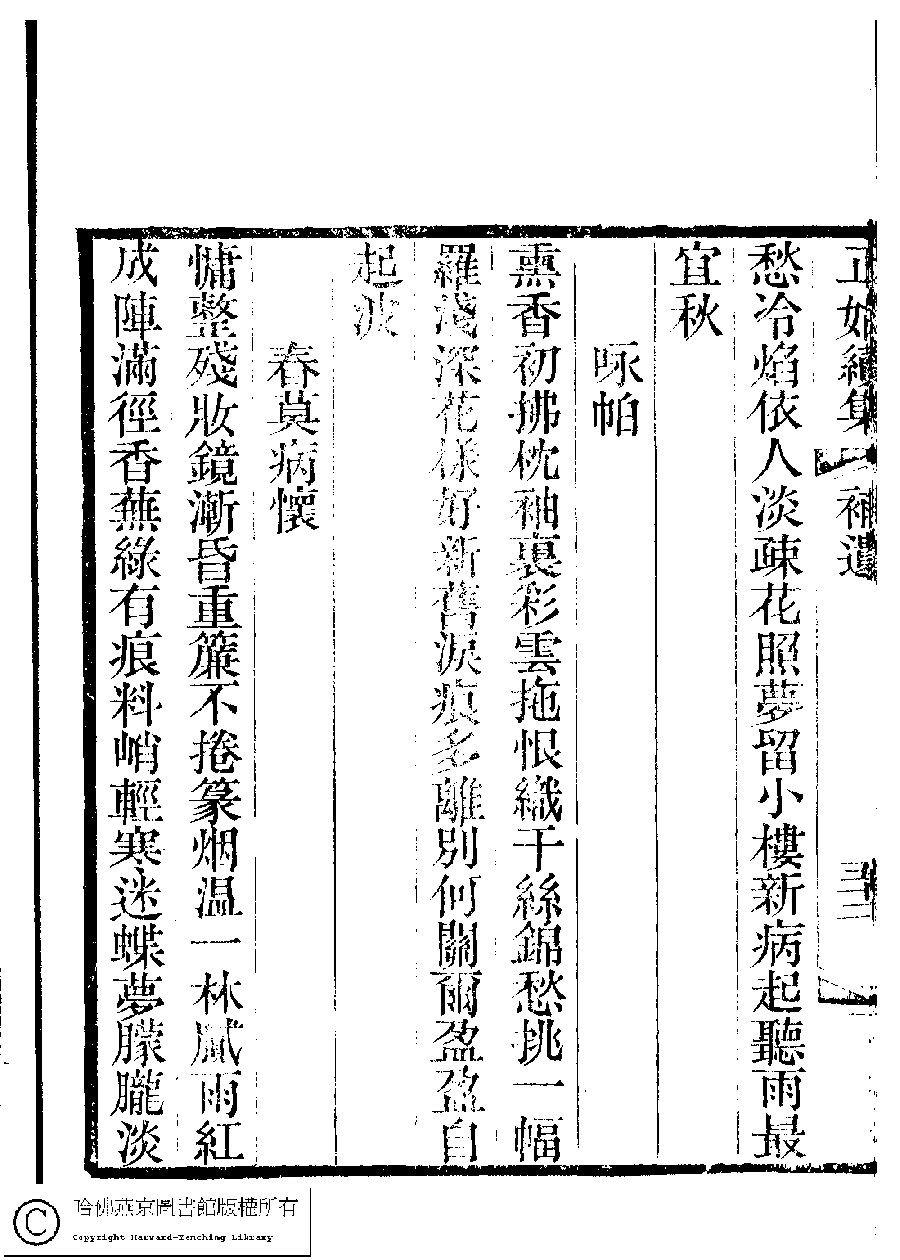 正始續集 補遺 三二
愁冷焰依人淡疎花照夢留小樓新病起聽雨最
宜秋
咏帕
熏香初拂枕袖裏彩雲拖恨織千絲錦愁挑一幅
羅淺深花樣好新舊淚痕多離別何關爾盈盈自
起波
春莫病懷
慵整殘妝鏡漸昏重簾不捲篆烟温一林膩雨紅
成陣滿徑香蕪綠有痕料峭輕寒迷蝶夢朦朧淡
哈佛燕京圖書館版權所有
Copyright Harvard-Yenching Library